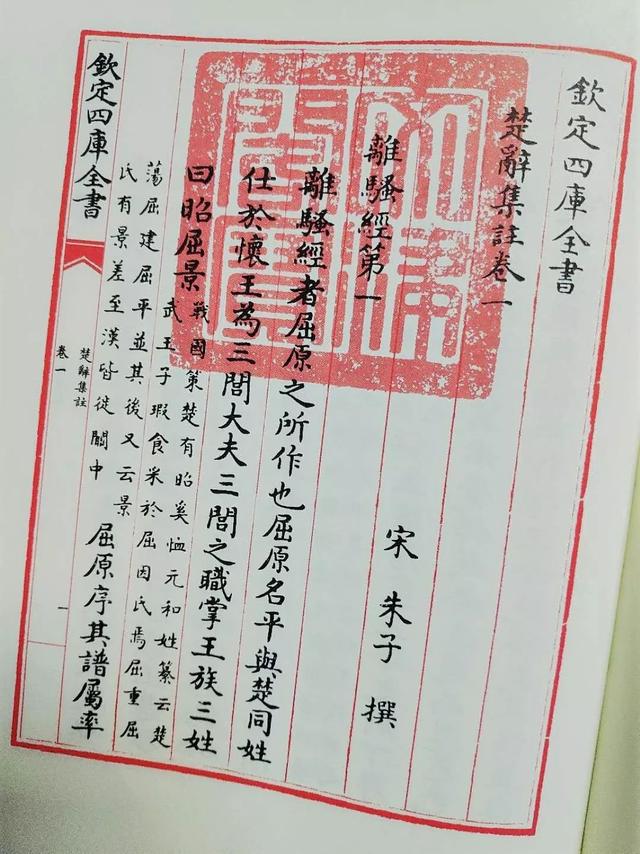 欽定四庫全書
楚辭集註卷一
宋 朱子 撰
離騷經第一
離騷經者屈原之所作也屈原名平與楚同姓
仕於懷王為三閭大夫三閭之職掌王族三姓
曰昭屈景 戰國策楚有昭奚恤元和姓纂云楚
武王子瑕食采於屈因氏焉屈重屈
蕩屈建屈平並其後又云景
氏有景差至漢皆徙關中 屈原序其譜屬率
欽定四庫全書
楚辭集註
卷一
一